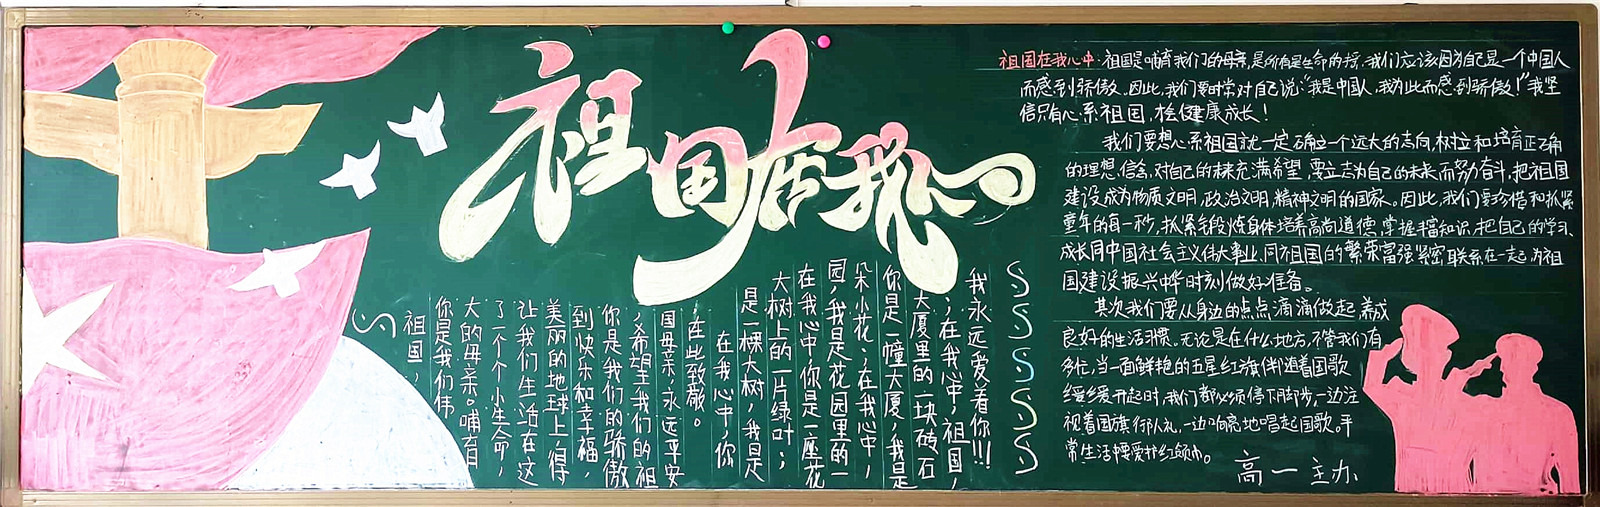 祖国在我心
祖国，
你是我们伟
大的母亲。哺育
了一个个小生命，
让我们生活在这
美丽的地球上，得
到快乐和幸福，
你是我们的骄傲
，希望我们的祖
国母亲，永远平安
，在此致敬。
在我心中，你
是一棵大树，我是
大树上的一片绿叶；
在我心中你是一座花
园，我是花园里的一
朵小花；在我心中，
你是一幢大厦，我是
大厦里的一块砖石
；在我心中，祖国，
我永远爱着你!!!
祖国在我心中：祖国是哺育我们的母亲，是所有是生命的摇，我们应该因为自己是一个中国人
而感到骄傲。因此，我们要时常对自己说：“我是中国人，我为此而感到骄傲！”我坚
信只有心系祖国，健康成长！
我们要想心系祖国就一定确立一个远大的志向，树立和培育正确
的理想，信念，对自己的未来充满希望，要立志为自己的未来而努力奋斗，把祖国
建设成为物质文明，政治文明，精神文明的国家。因此，我们要珍惜和抓紧
童年的每一秒，抓紧锻炼身体培养高尚道德，掌握丰富知识，把自己的学习、
成长同中国社会主义伟大事业、同祖国的繁荣富强紧密联系在一起，为祖
国建设，振兴中华时刻做好准备。
其次我们要从身边的点点滴滴做起，养成
良好的生活习惯。无论是在什么地方，不管我们有
多忙，当一面鲜艳的五星红旗伴随着国歌
缓缓开起时，我们都必须停下脚步，一边注
视着国旗行队礼，一边响亮地唱起国歌。平
常生活中要爱护红领巾。
高一 主办